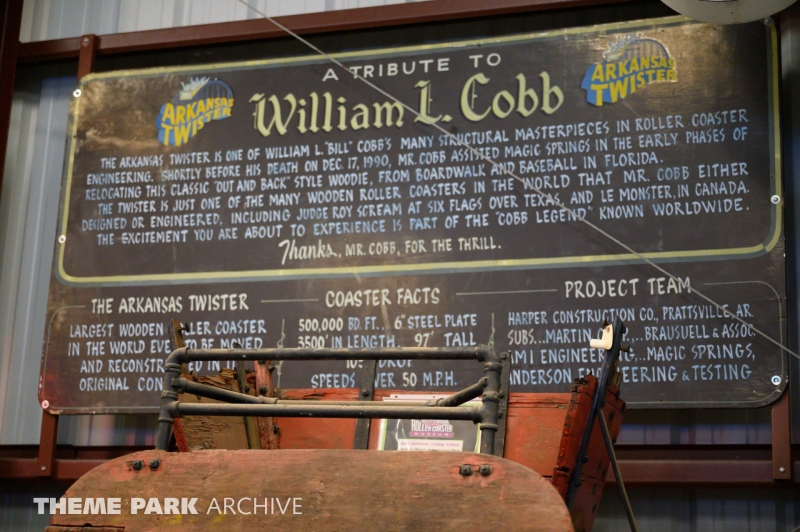 A TRIBUTE TO
ARKANSAS TWISTER
William L. Cobb
ARKANSAS TWISTER
THE ARKANSAS TWISTER IS ONE OF WILLIAM L. "BILL" COBB'S MANY STRUCTURAL MASTERPIECES IN ROLLER COASTER
ENGINEERING. SHORTLY BEFORE HIS DEATH ON DEC. 17, 1990, MR. COBB ASSISTED MAGIC SPRINGS IN THE EARLY PHASES OF
RELOCATING THIS CLASSIC "OUT AND BACK" STYLE WOODIE, FROM BOARDWALK AND BASEBALL IN FLORIDA.
THE TWISTER IS JUST ONE OF THE MANY WOODEN ROLLER COASTERS IN THE WORLD THAT MR. COBB EITHER
DESIGNED OR ENGINEERED, INCLUDING JUDGE ROY SCREAM AT SIX FLAGS OVER TEXAS, AND LE MONSTER, IN CANADA.
THE EXCITEMENT YOU ARE ABOUT TO EXPERIENCE IS PART OF THE "COBB LEGEND" KNOWN WORLDWIDE.
Thanks, MR. COBB, FOR THE THRILL.
THE ARKANSAS TWISTER
LARGEST WOODEN ROLLER COASTER
IN THE WORLD EVER TO BE MOVED
AND RECONST IN
ORIGINAL CON
COASTER FACTS
500,000 BD. FT... 6" STEEL PLATE
3500' IN LENGTH 97' TALL
DROP
SPEEDS OVER 50 M.P.H.
PROJECT TEAM
HARPER CONSTRUCTION CO., PRATTSVILLE, AR.
SUBS...MARTIN BRAUSUELL & ASSOC.
ENGINEERING...MAGIC SPRINGS,
ANDERSON ENGINEERING & TESTING
ROLLER COASTER
MUSEUM
THEME PARK ARCHIVE